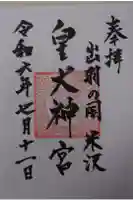 奉拝
出羽の国 米沢
皇大神宮
令和六年七月十一日